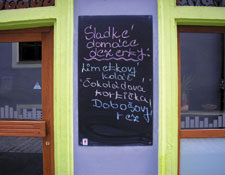 Sladké
domáce
dezerty:
Limetkový
koláč
Čokoládová
tortička
Dobošový
rez